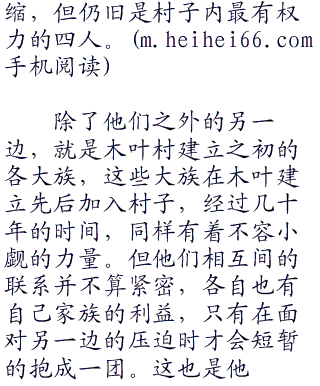 缩，但仍旧是村子内最有权
力的四人。(m.heihei66.com
手机阅读)
除了他们之外的另一
边，就是木叶村建立之初的
各大族，这些大族在木叶建
立先后加入村子，经过几十
年的时间，同样有着不容小
觑的力量。但他们相互间的
联系并不算紧密，各自也有
自己家族的利益，只有在面
对另一边的压迫时才会短暂
的抱成一团。这也是他